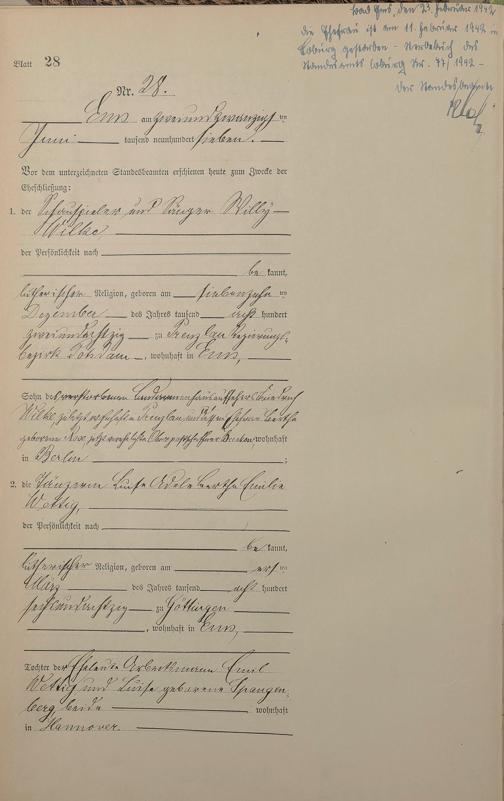 Bad Ems, den 23. Februar 1942
die Ehefrau ist am 11. Februar 1942 in
Coburg gestorben - Sterbebuch des
Standesamts Coburg Nr. 77/1942 -
Der Standesbeamte
Blatt 28
Nr. 28.
Ems am zweiundzwanzigsten
Juni tausend neunhundert sieben.
Vor dem unterzeichneten Standesbeamten erschienen heute zum Zwecke der
Eheschließung:
1. der Schauspieler und Sänger Willy
Wilke,
der Persönlichkeit nach
be kannt,
lutherischer Religion, geboren am siebenzehnten
Dezember des Jahres tausend acht hundert
zweiundachtzig zu Prenzlau Regierungs-
bezirk Potsdam, wohnhaft in Ems,
Sohn des verstorbenen
Wilke, zuletzt wohnhaft Prenzlau und Bertha
geborenen jetzt wohnhaft
in Berlin ;
2. die Tänzerin Luise Adele Bertha Emilie
Wettig,
der Persönlichkeit nach
be kannt,
lutherischer Religion, geboren am ersten
März des Jahres tausend acht hundert
sechsundachtzig zu Göttingen
, wohnhaft in Ems,
Tochter der Eheleute Emil
Wettig und Luise geborene Spangen-
berg, beide wohnhaft
in Hannover.